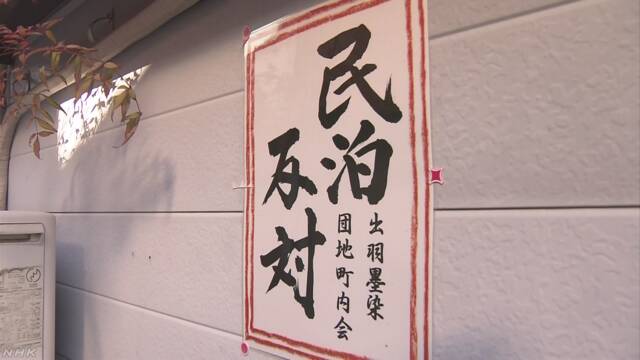 民泊
反対
出羽墨染
団地町内会
NHK